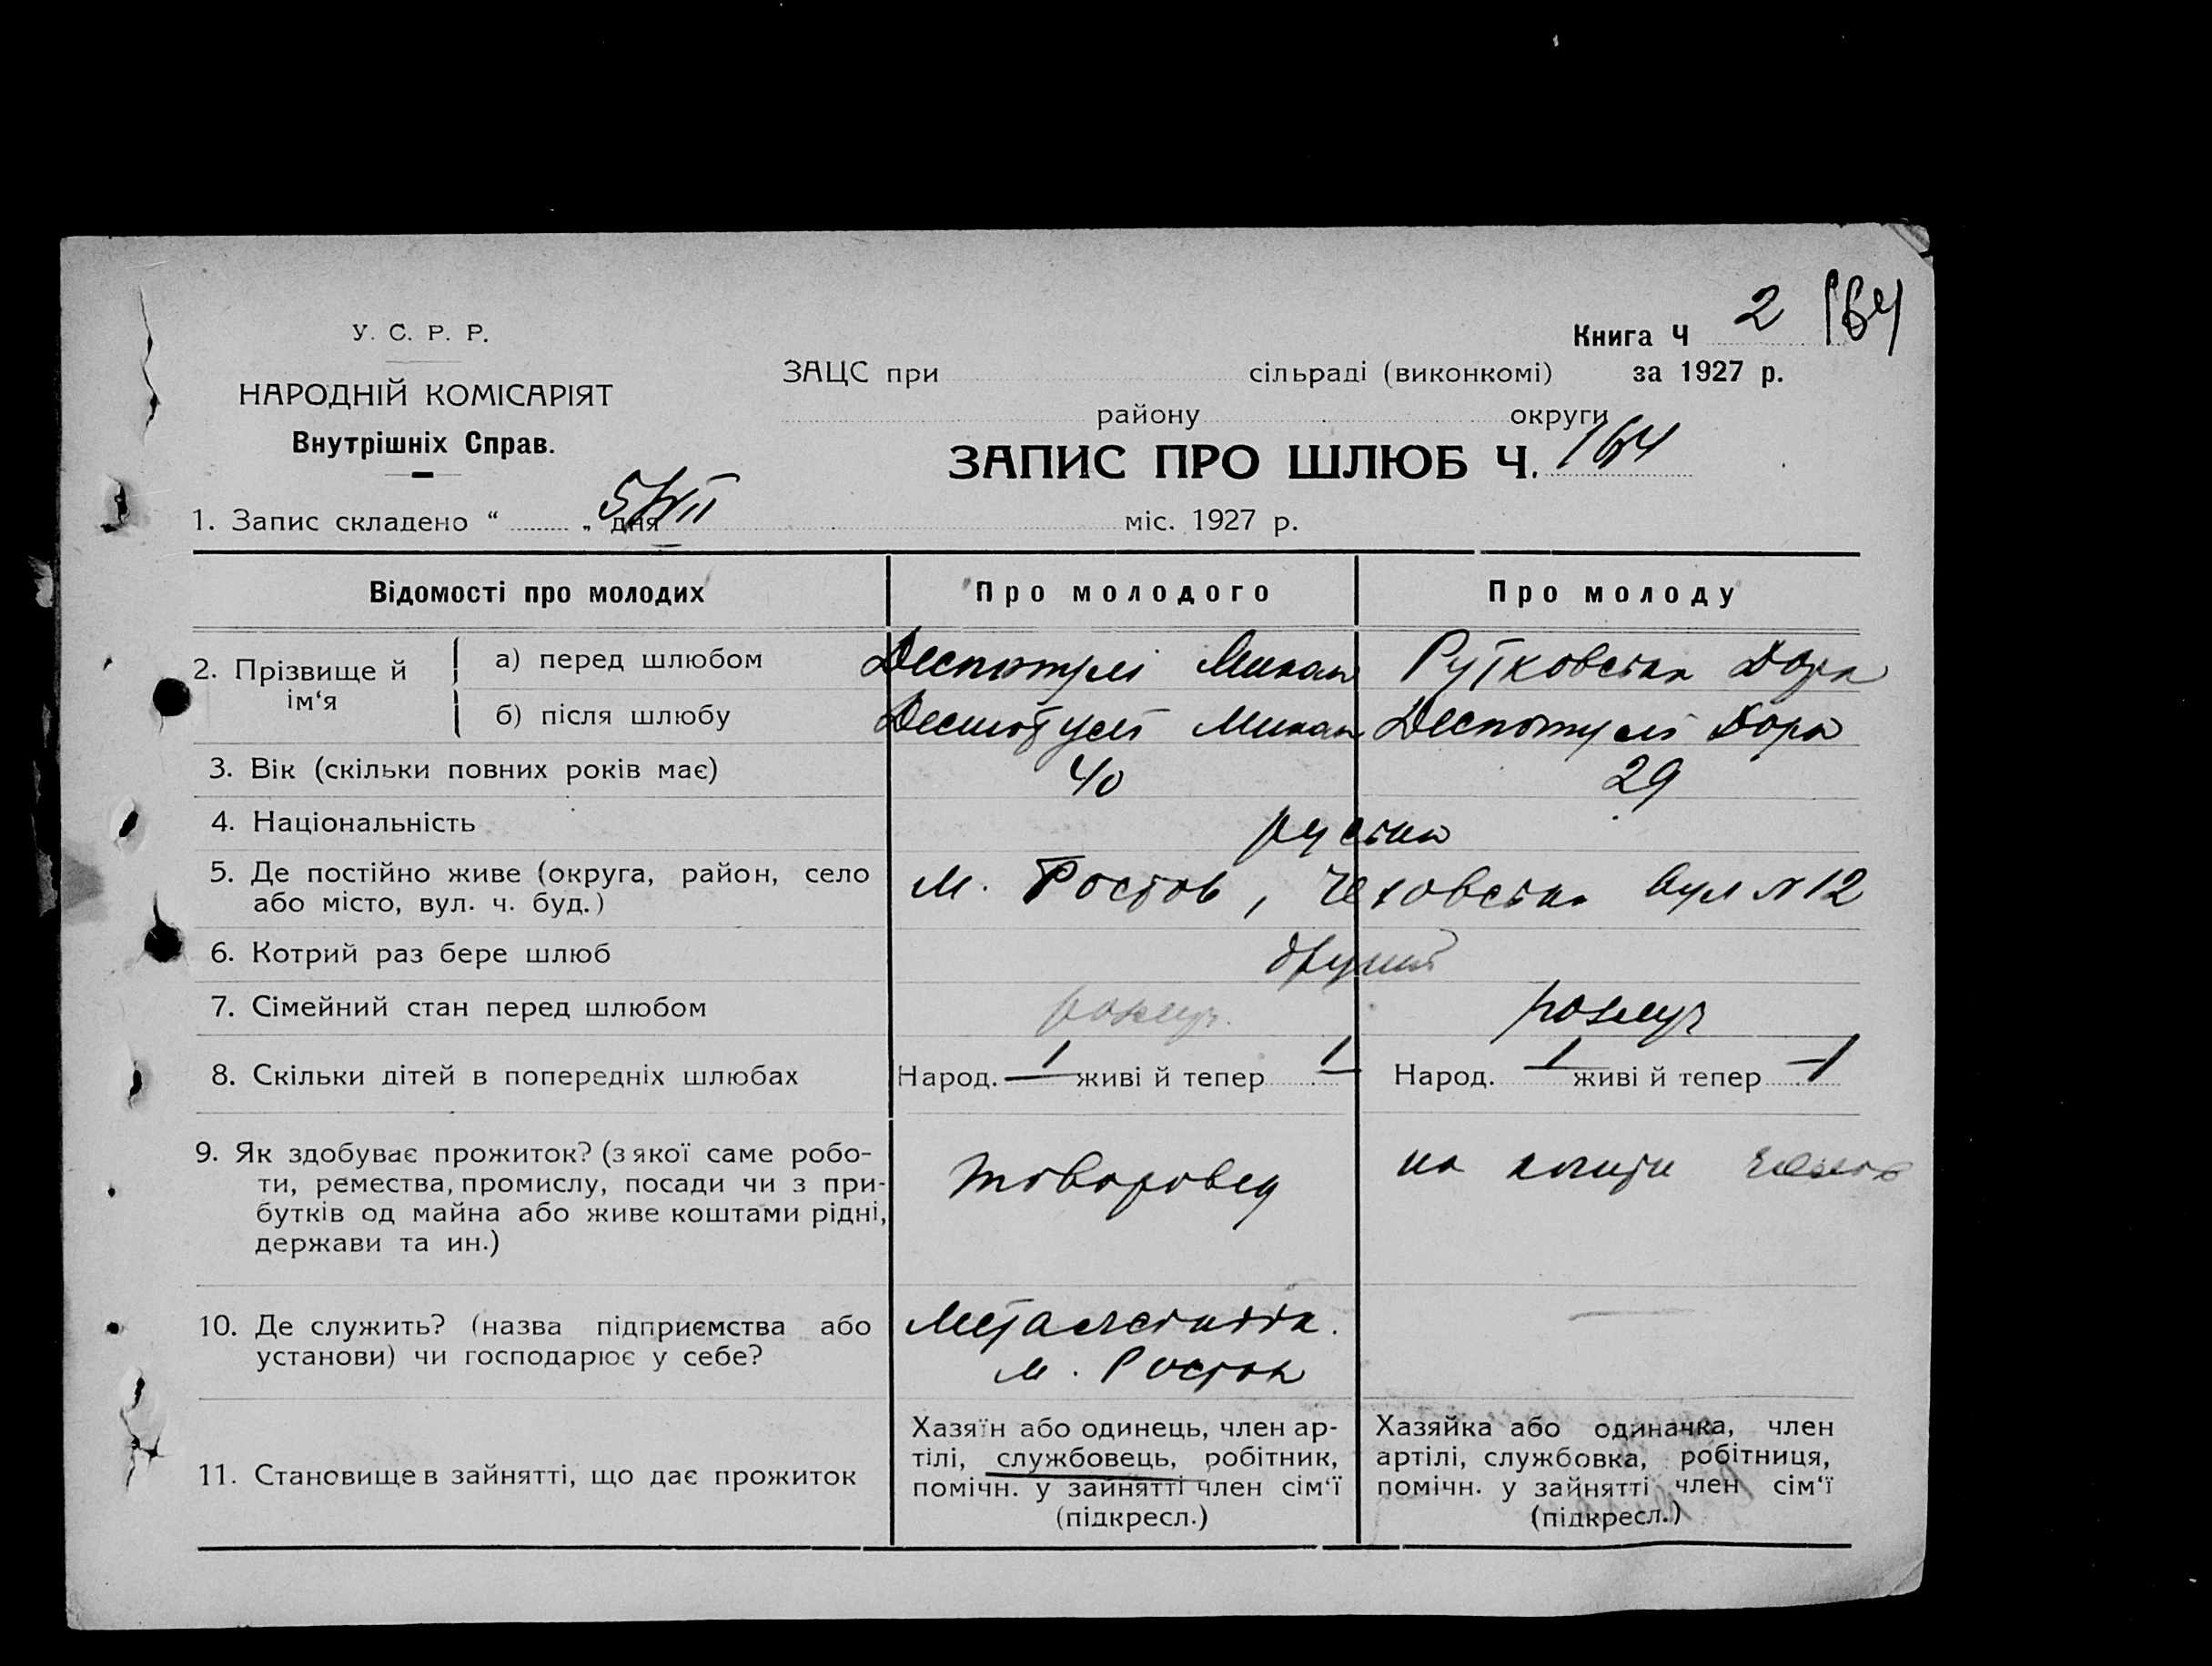 Книга Ч 2 164
У. С. Р. Р.
ЗАЦС при сільраді (виконкомі) за 1927 р.
НАРОДНІЙ КОМІСАРІЯТ
району округи
Внутрішніх Справ.
ЗАПИС ПРО ШЛЮБ Ч. 164
1. Запис складено “ „ дня 5/VII міс. 1927 р.
Відомості про молодих Про молодого Про молоду
2. Прізвище й ім‘я
а) перед шлюбом Деспотулі Рутковська Дора
б) після шлюбу Деспотулі Деспотулі Дора
3. Вік (скільки повних років має) 40 29
4. Національність руська
5. Де постійно живе (округа, район, село
або місто, вул. ч. буд.) м. Ростов, Чеховська вул № 12
6. Котрий раз бере шлюб другий
7. Сімейний стан перед шлюбом розлуч. розлуч
8. Скільки дітей в попередніх шлюбах Народ. 1 живі й тепер 1 Народ. 1 живі й тепер 1
9. Як здобуває прожиток? (з якої саме робо-
ти, ремества, промислу, посади чи з при-
бутків од майна або живе коштами рідні,
держави та ин.)
товаровед
на кошти
10. Де служить? (назва підприємства або
установи) чи господарює у себе?
м. Ростов
11. Становище в зайнятті, що дає прожиток
Хазяїн або одинець, член ар-
тілі, службовець, робітник,
помічн. у зайнятті член сім‘ї
(підкресл.)
Хазяйка або одиначка, член
артілі, службовка, робітниця,
помічн. у зайнятті член сім‘ї
(підкресл.)